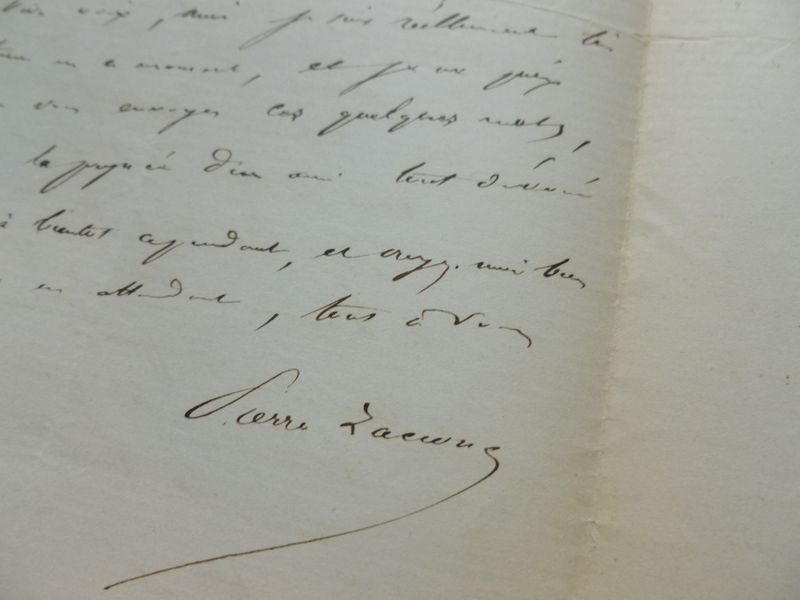 voix, mais je suis réellement très
en ce moment, et je ne puis
vous envoyer ces quelques mots,
la poignée d'un ami tout dévoué
à bientôt cependant, et croyez-moi bien
en attendant, tout à vous
Pierre Zaccone